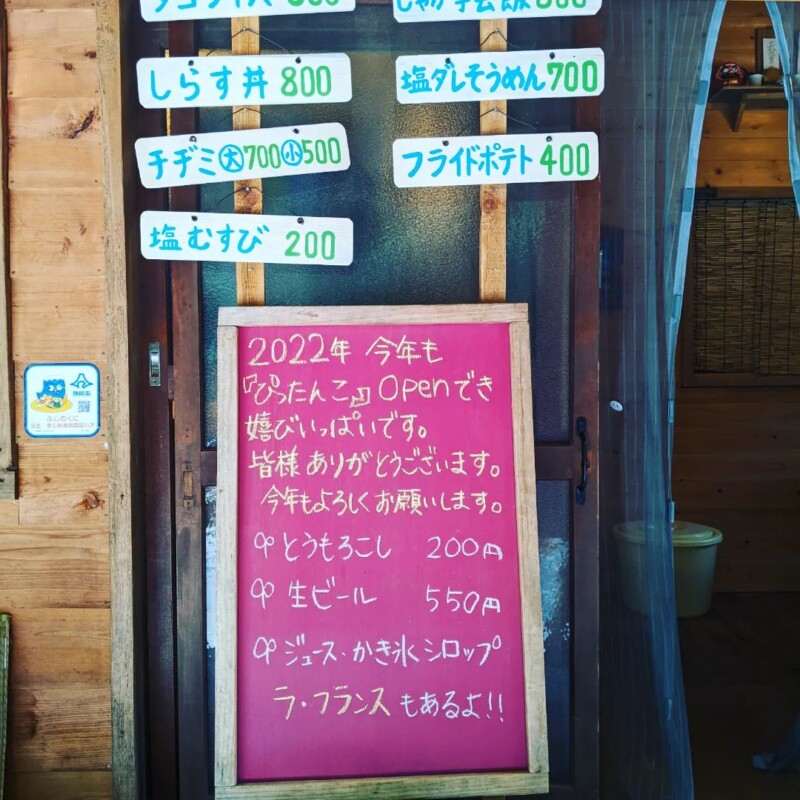 タコライス 800
しらす丼 800
チヂミ 大 700 小 500
塩むすび 200
塩ダレそうめん 700
フライドポテト 400
2022年 今年も
『ぴったんこ』Openでき
嬉びいっぱいです。
皆様ありがとうございます。
今年もよろしくお願いします。
とうもろこし 200円
生ビール 550円
ジュース・かき氷シロップ
ラ・フランスもあるよ!!
ふじのくに